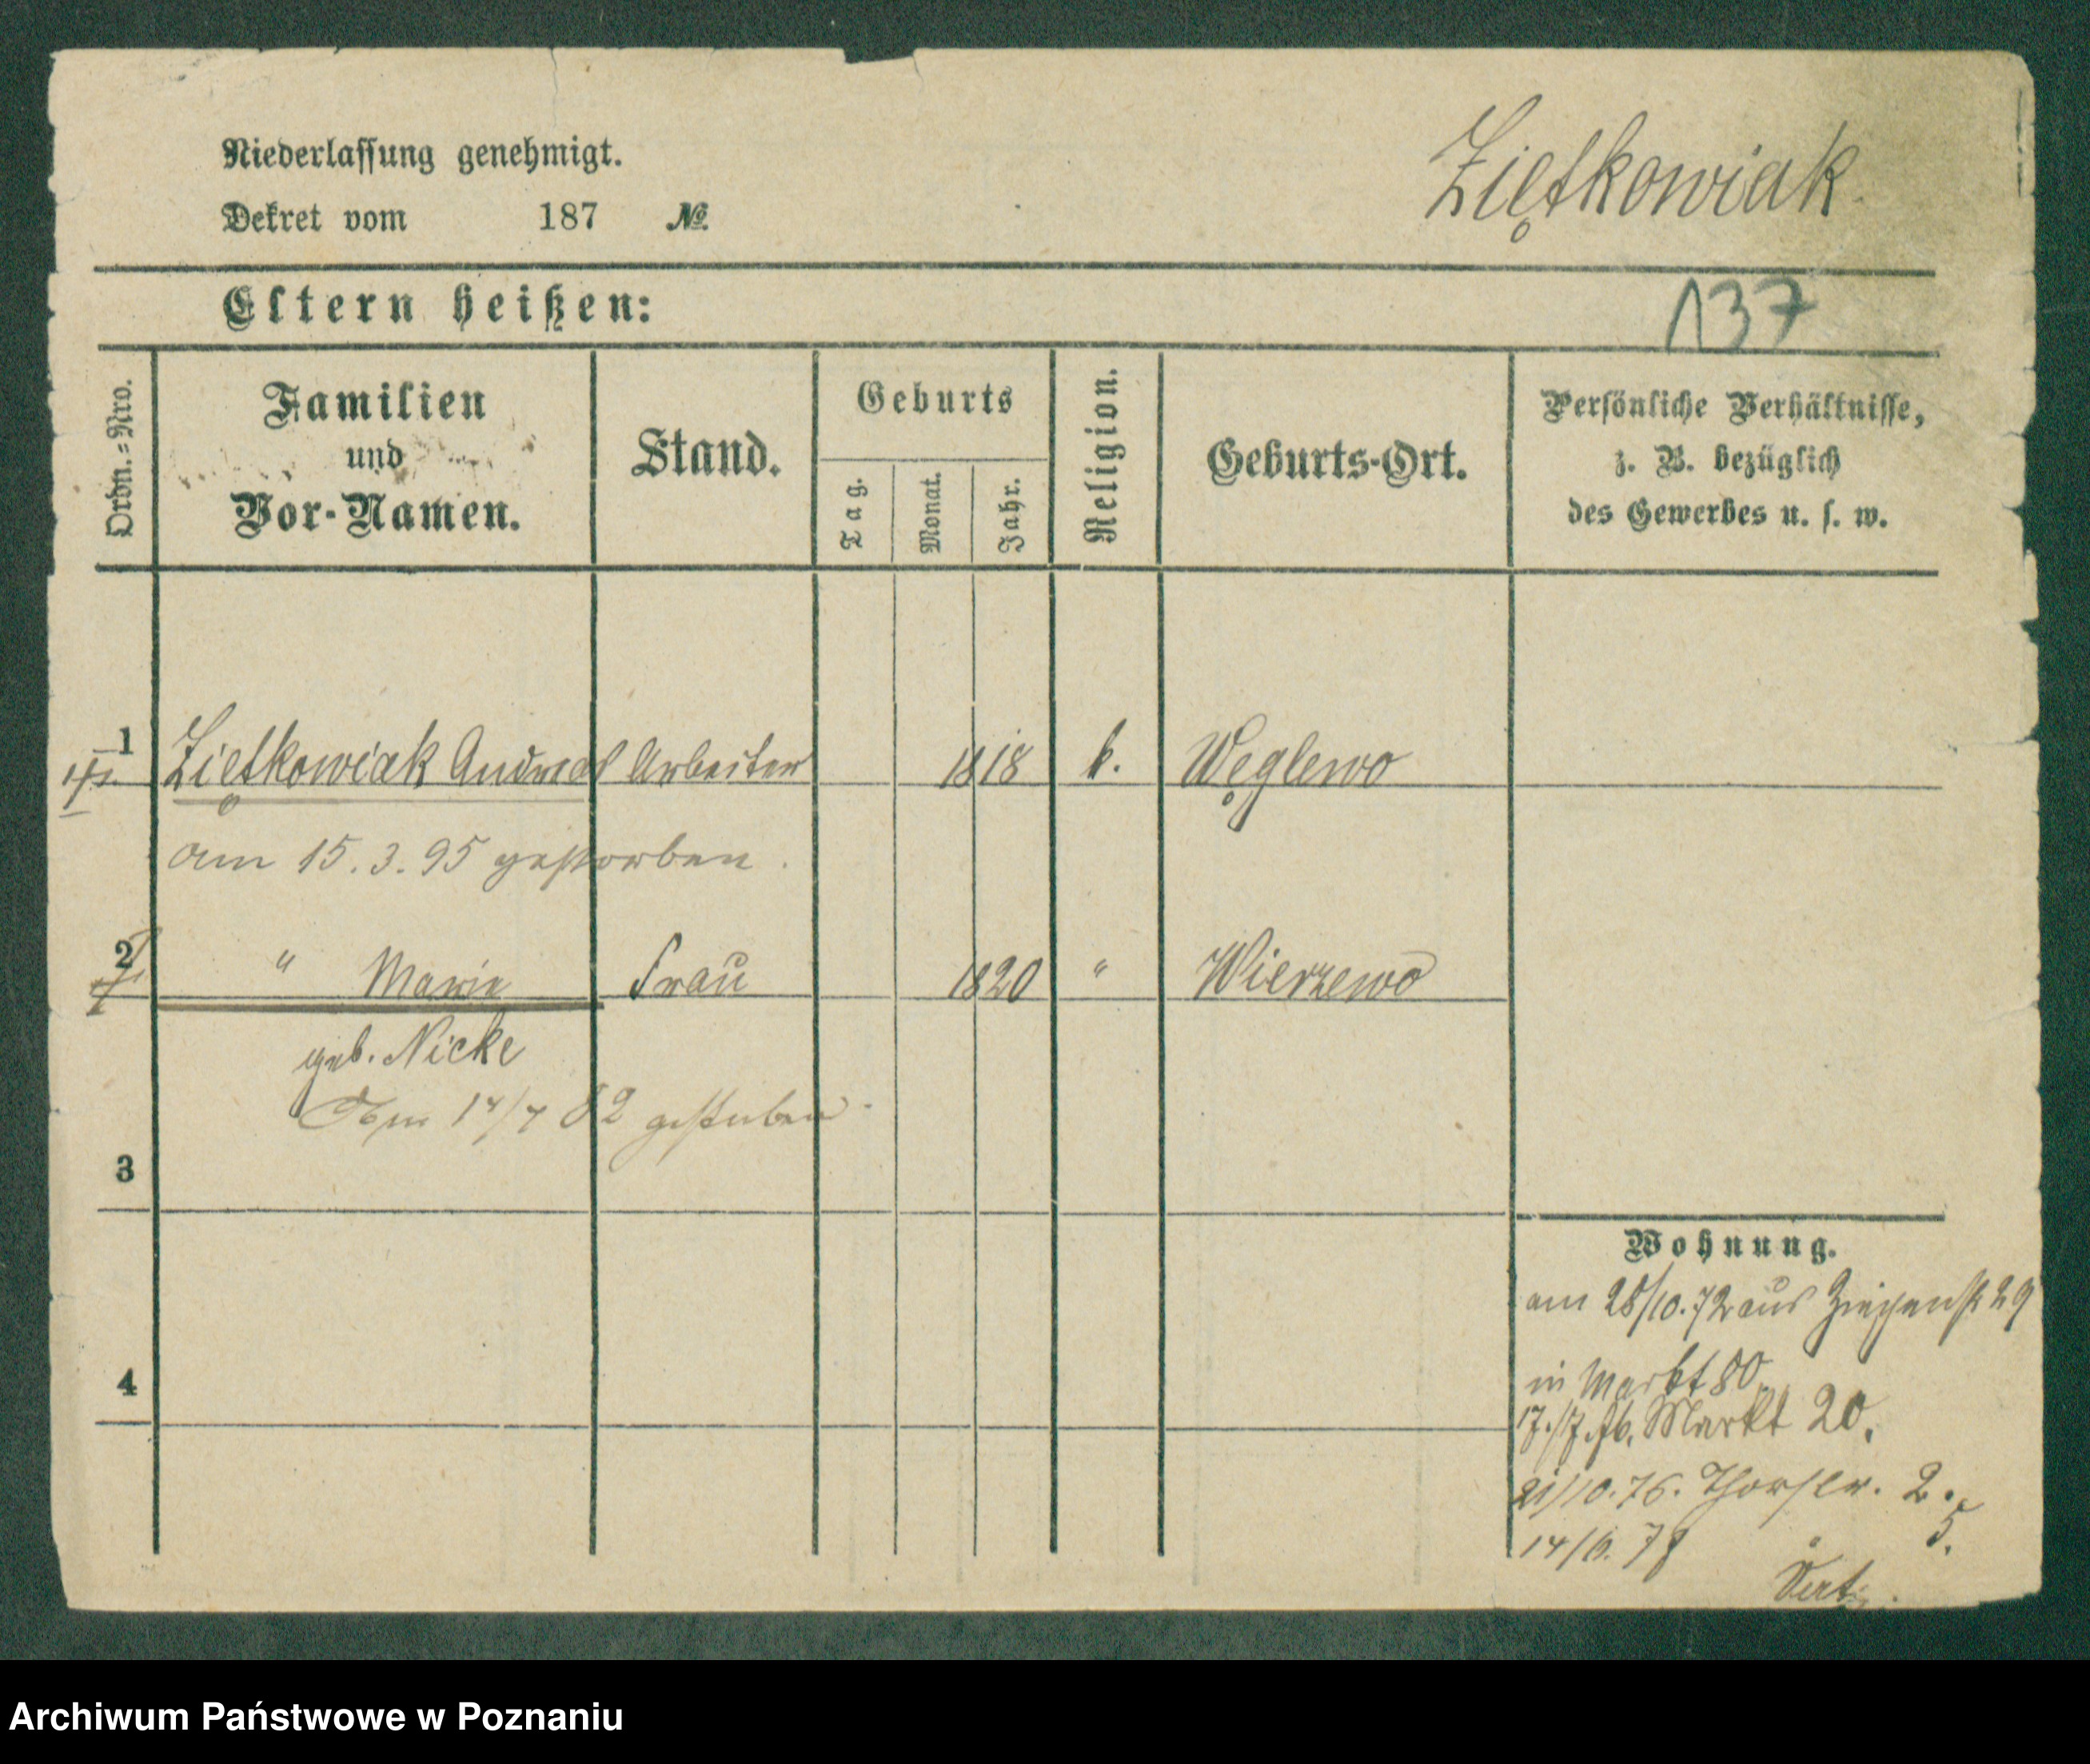 Niederlassung genehmigt.
Dekret vom 187 №
Ziętkowiak
Eltern heißen:
137
Ordn.=Nro.
Familien
und
Vor-Namen.
Stand.
Geburts
Tag.
Monat.
Jahr.
Religion.
Geburts-Ort.
Persönliche Verhältnisse,
z. B. bezüglich
des Gewerbes u. s. w.
1 Ziętkowiak Andreas Arbeiter 1818 k. Węglewo
am 15.3.95 gestorben.
2 " Marie Frau 1820 " Wierzewo
geb. Nicke
Am 14/4 82 gestorben
3
4
Wohnung.
am 28/10.72 aus Ziegenst 29
in Markt 80.
17./7.76. Markt 20.
21/10.76. Thorstr. 2.
14/6. 78 5.
Archiwum Państwowe w Poznaniu